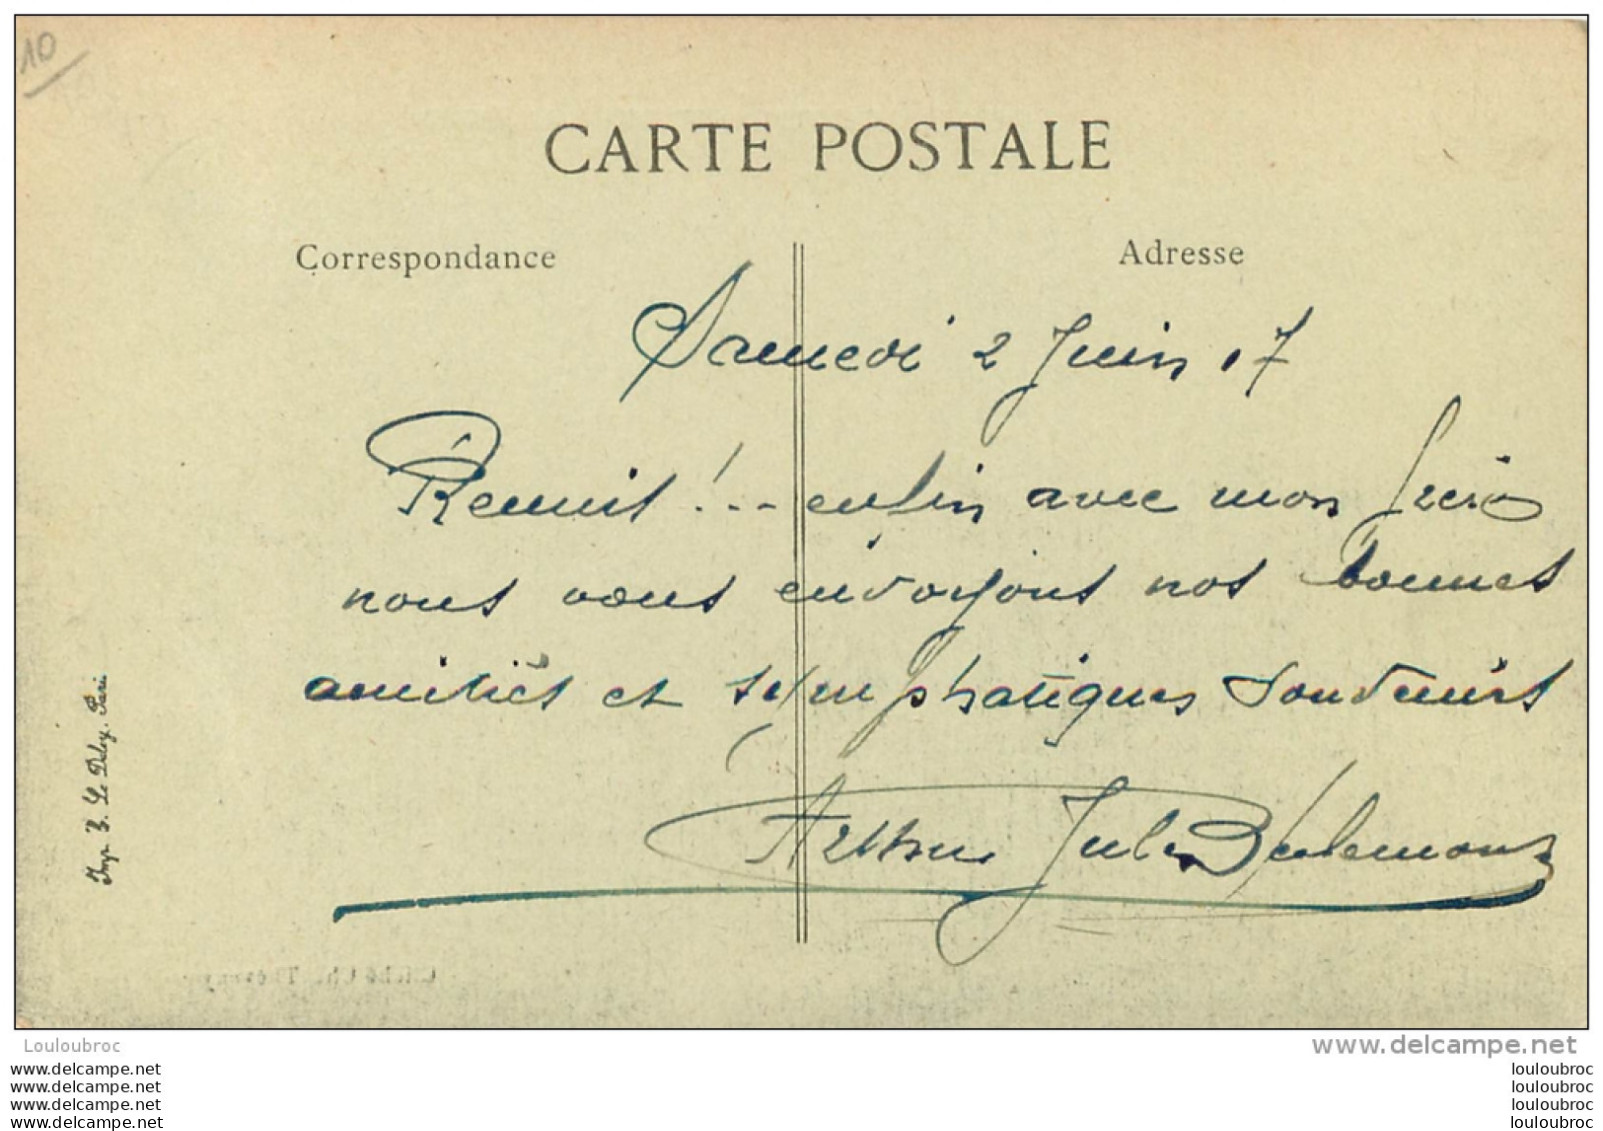 10
CARTE POSTALE
Correspondance
Adresse
Samedi 2 Juin 17
Réunis !... enfin avec mon frère
nous vous envoyons nos bonnes
amitiés et sympathiques souvenirs
Arthur Jules
Imp. E. Le Deley. Paris
Cliché Ch.
Louloubroc
www.delcampe.net
www.delcampe.net
www.delcampe.net
www.delcampe.net
www.delcampe.net
louloubroc
louloubroc
louloubroc
louloubroc